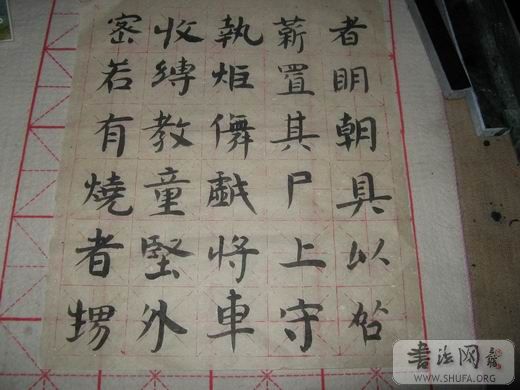 者眀朝具以
薪置其尸上守
執炬儛戯將車
收縛教童堅外
密若有燒者甥
書法网
WWW.SHUFA.ORG